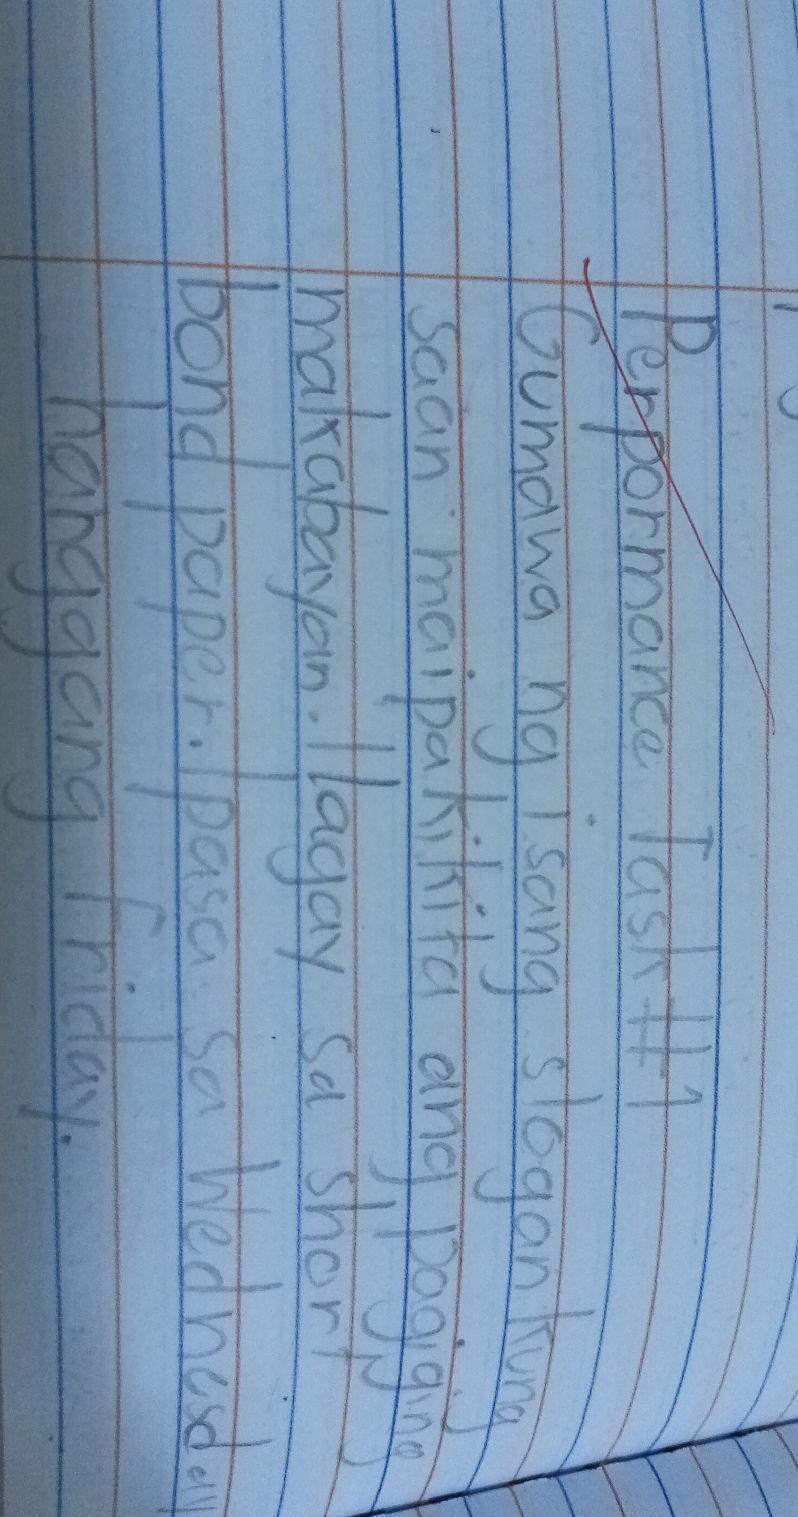 Perpormance Task #1
Gumawa ng isang slogan kung
saan maipakikita ang pagiging
makabayan. Ilagay sa short
bond paper. Ipasa sa Wednesday
hanggang friday.